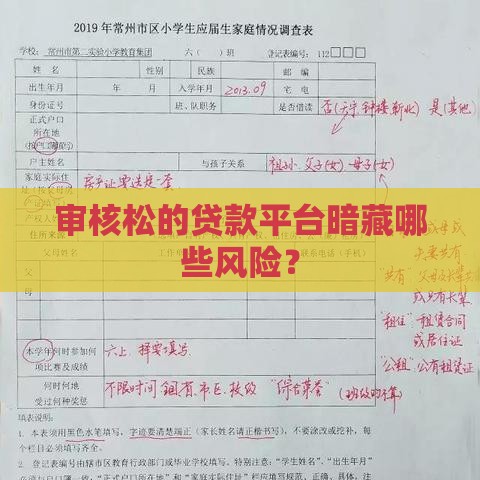 2019年常州市区小学生应届生家庭情况调查表
学校： 常州市第二实验小学教育集团 六（ ）班 登记表编号： 112□□□
姓 名 性别 民族 邮 编
出生年月 年 月 入学年月 2013.09 宅 电
身份证号 班、队职务 是否借读 否(天宁 钟楼 新北) 是(其他)
正式户口
所在地
(按户口簿填)
户主姓名 与孩子关系 祖孙、父子(女)、母子(女)
家庭实际住 房产证要选定一套
审核松的贷款平台暗藏哪
些风险？
住所来源
父母姓名
夫妻共有
"共有"
或只有长辈
"租住" 租赁合同
或居住证
"公租" 公有租赁证
本学年何时参加何
项比赛及成绩 六上，择要填写.
何时何地
受过何种奖励 不限时间 全国、省、市、区、校级 "综合荣誉" (班级的不算)
填表说明：
1．本表须用黑色水笔填写，字迹要清楚端正（家长姓名请正楷书写），不要涂改或挖补，每
个栏目必须填写齐全。
2．登记表编号由辖市区教育行政部门或毕业学校填写。特别注意："学生姓名"、"出生年月"